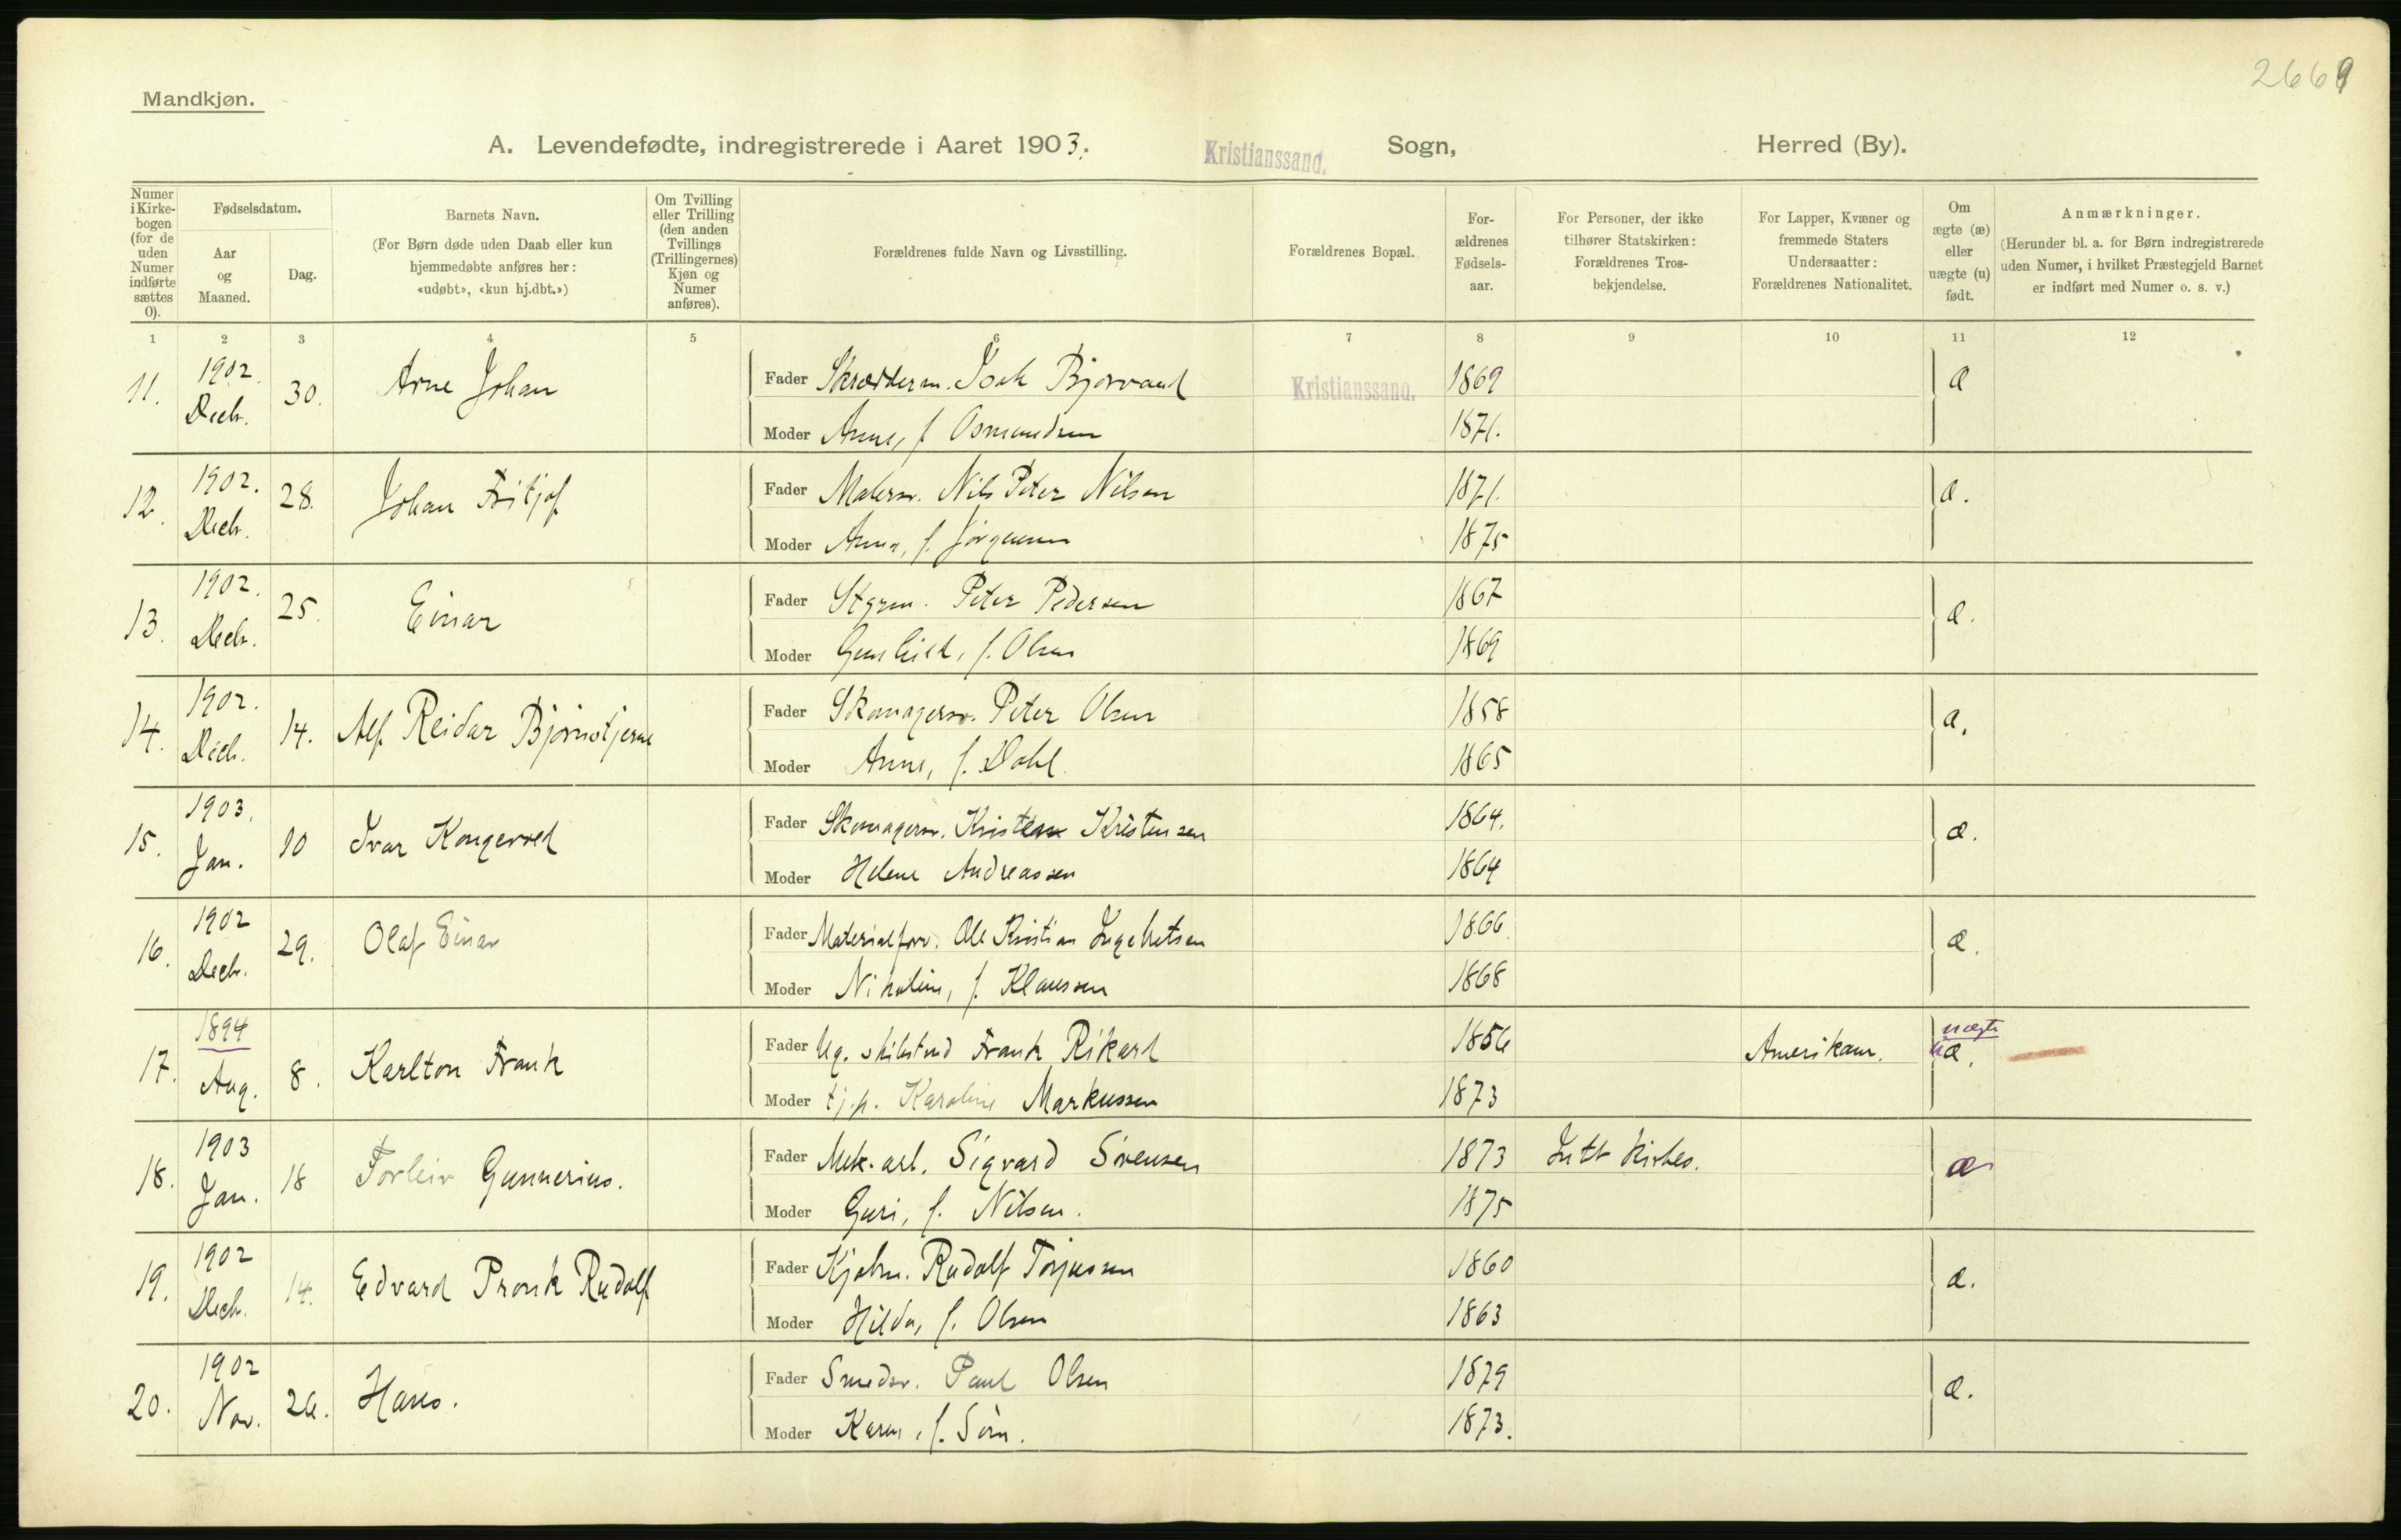 2669
Mandkjøn.
A. Levendefødte, indregistrerede i Aaret 1903. Kristianssand. Sogn, Herred (By).
Numer i Kirke-bogen (for de uden Numer indførte sættes 0).
Fødselsdatum.
Aar og Maaned.
Dag.
Barnets Navn.
(For Børn døde uden Daab eller kun
hjemmedøbte anføres her:
«udøbt», «kun hj.dbt.»)
Om Tvilling
eller Trilling
(den anden
Tvillings
(Trillingernes)
Kjøn og
Numer
anføres).
Forældrenes fulde Navn og Livsstilling.
Forældrenes Bopæl.
For-
ældrenes
Fødsels-
aar.
For Personer, der ikke
tilhører Statskirken:
Forældrenes Tros-
bekjendelse.
For Lapper, Kvæner og
fremmede Staters
Undersaatter:
Forældrenes Nationalitet.
Om
ægte (æ)
eller
uægte (u)
født.
Anmærkninger.
(Herunder bl. a. for Børn indregistrerede
uden Numer, i hvilket Præstegjeld Barnet
er indført med Numer o. s. v.)
1 2 3 4 5 6 7 8 9 10 11 12
11. 1902. Decb. 30. Arne Johan
Fader Skrædderm. Isak Bjorvand Kristianssand. 1869 æ
Moder Anne, f. Osmundsen 1871.
12. 1902. Decb. 28. Johan Fritjof
Fader Malersv. Nils Peter Nilsen 1871. æ.
Moder Anna, f. Jørgensen 1875
13. 1902. Decb. 25. Einar
Fader Styrm. Peter Pedersen 1867 æ.
Moder Gunhild, f. Olsen 1869
14. 1902. Decb. 14. Alf Reidar Bjørnstjerne
Fader Skomagersv. Peter Olsen 1858 æ.
Moder Anne, f. Dahl. 1865
15. 1903. Jan. 10 Ivar Kongevold
Fader Skomagersv. Kristian Kristensen 1864. æ.
Moder Helene Andreassen 1864
16. 1902 Decb. 29. Olaf Einar
Fader Materialforv. Ole Kristian Ingebretsen 1866. æ.
Moder Nikoline, f. Klaussen 1868
17. 1894 Aug. 8. Karlton Frank
Fader Ug. Frank Rikard 1856 Amerikaner. uægte æ.
Moder tj.p. Karoline Markussen 1873
18. 1903 Jan. 18 Torleiv Gunnerius.
Fader Mek. arb. Sigvard Sørensen 1873 Luth. Kirkes. æ
Moder Guri, f. Nilsen. 1875
19. 1902 Decb. 14. Edvard Pronk Rudolf
Fader Kjøbm. Rudolf Torjussen 1860 æ.
Moder Hilda, f. Olsen 1863
20. 1902 Nov. 26. Hans.
Fader Smedsv. Paul Olsen 1879 æ.
Moder Karen, f. 1873.